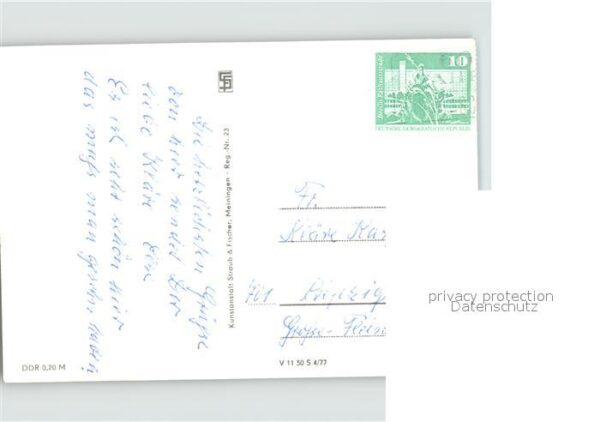 Die herzlichsten Grüße
von hier sendet Dir
liebe Kläre Dein
Es ist sehr schön hier
das muß man gesehn haben!
Kunstanstalt Straub & Fischer, Meiningen - Reg.-Nr. 23
10
Berlin, Rathausstraße
DEUTSCHE DEMOKRATISCHE REPUBLIK
Fr.
Kläre
701 Leipzig
Große-
DDR 0,20 M
V 11 50 S 4/77
privacy protection
Datenschutz